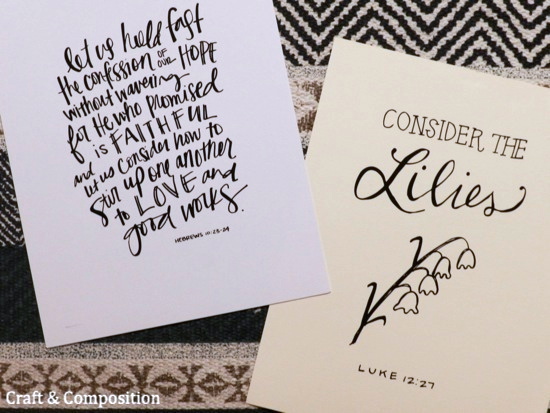 let us hold fast
the confession OF OUR HOPE
without wavering
for He who promised
is FAITHFUL
and let us consider how to
stir up one another
to LOVE and
good works.
HEBREWS 10:23-24
CONSIDER THE
Lilies
LUKE 12:27
Craft & Composition